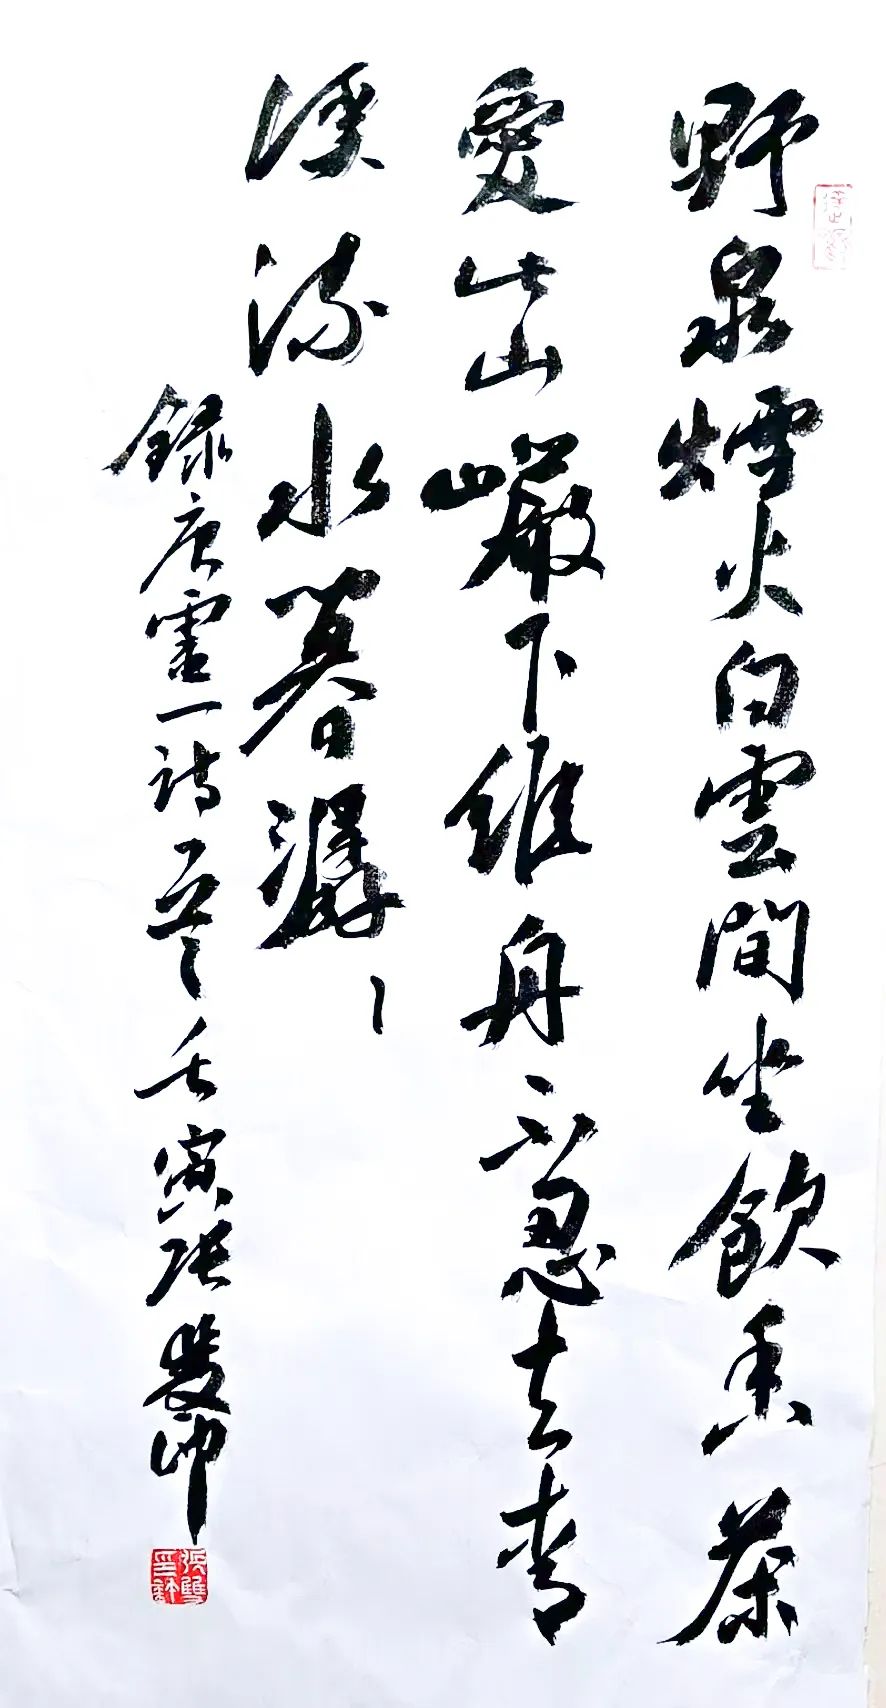 野泉煙火白雲間坐飲香茶
愛此山巖下維舟不忍去青
溪流水暮潺〻
錄唐靈一詩壬寅張雙